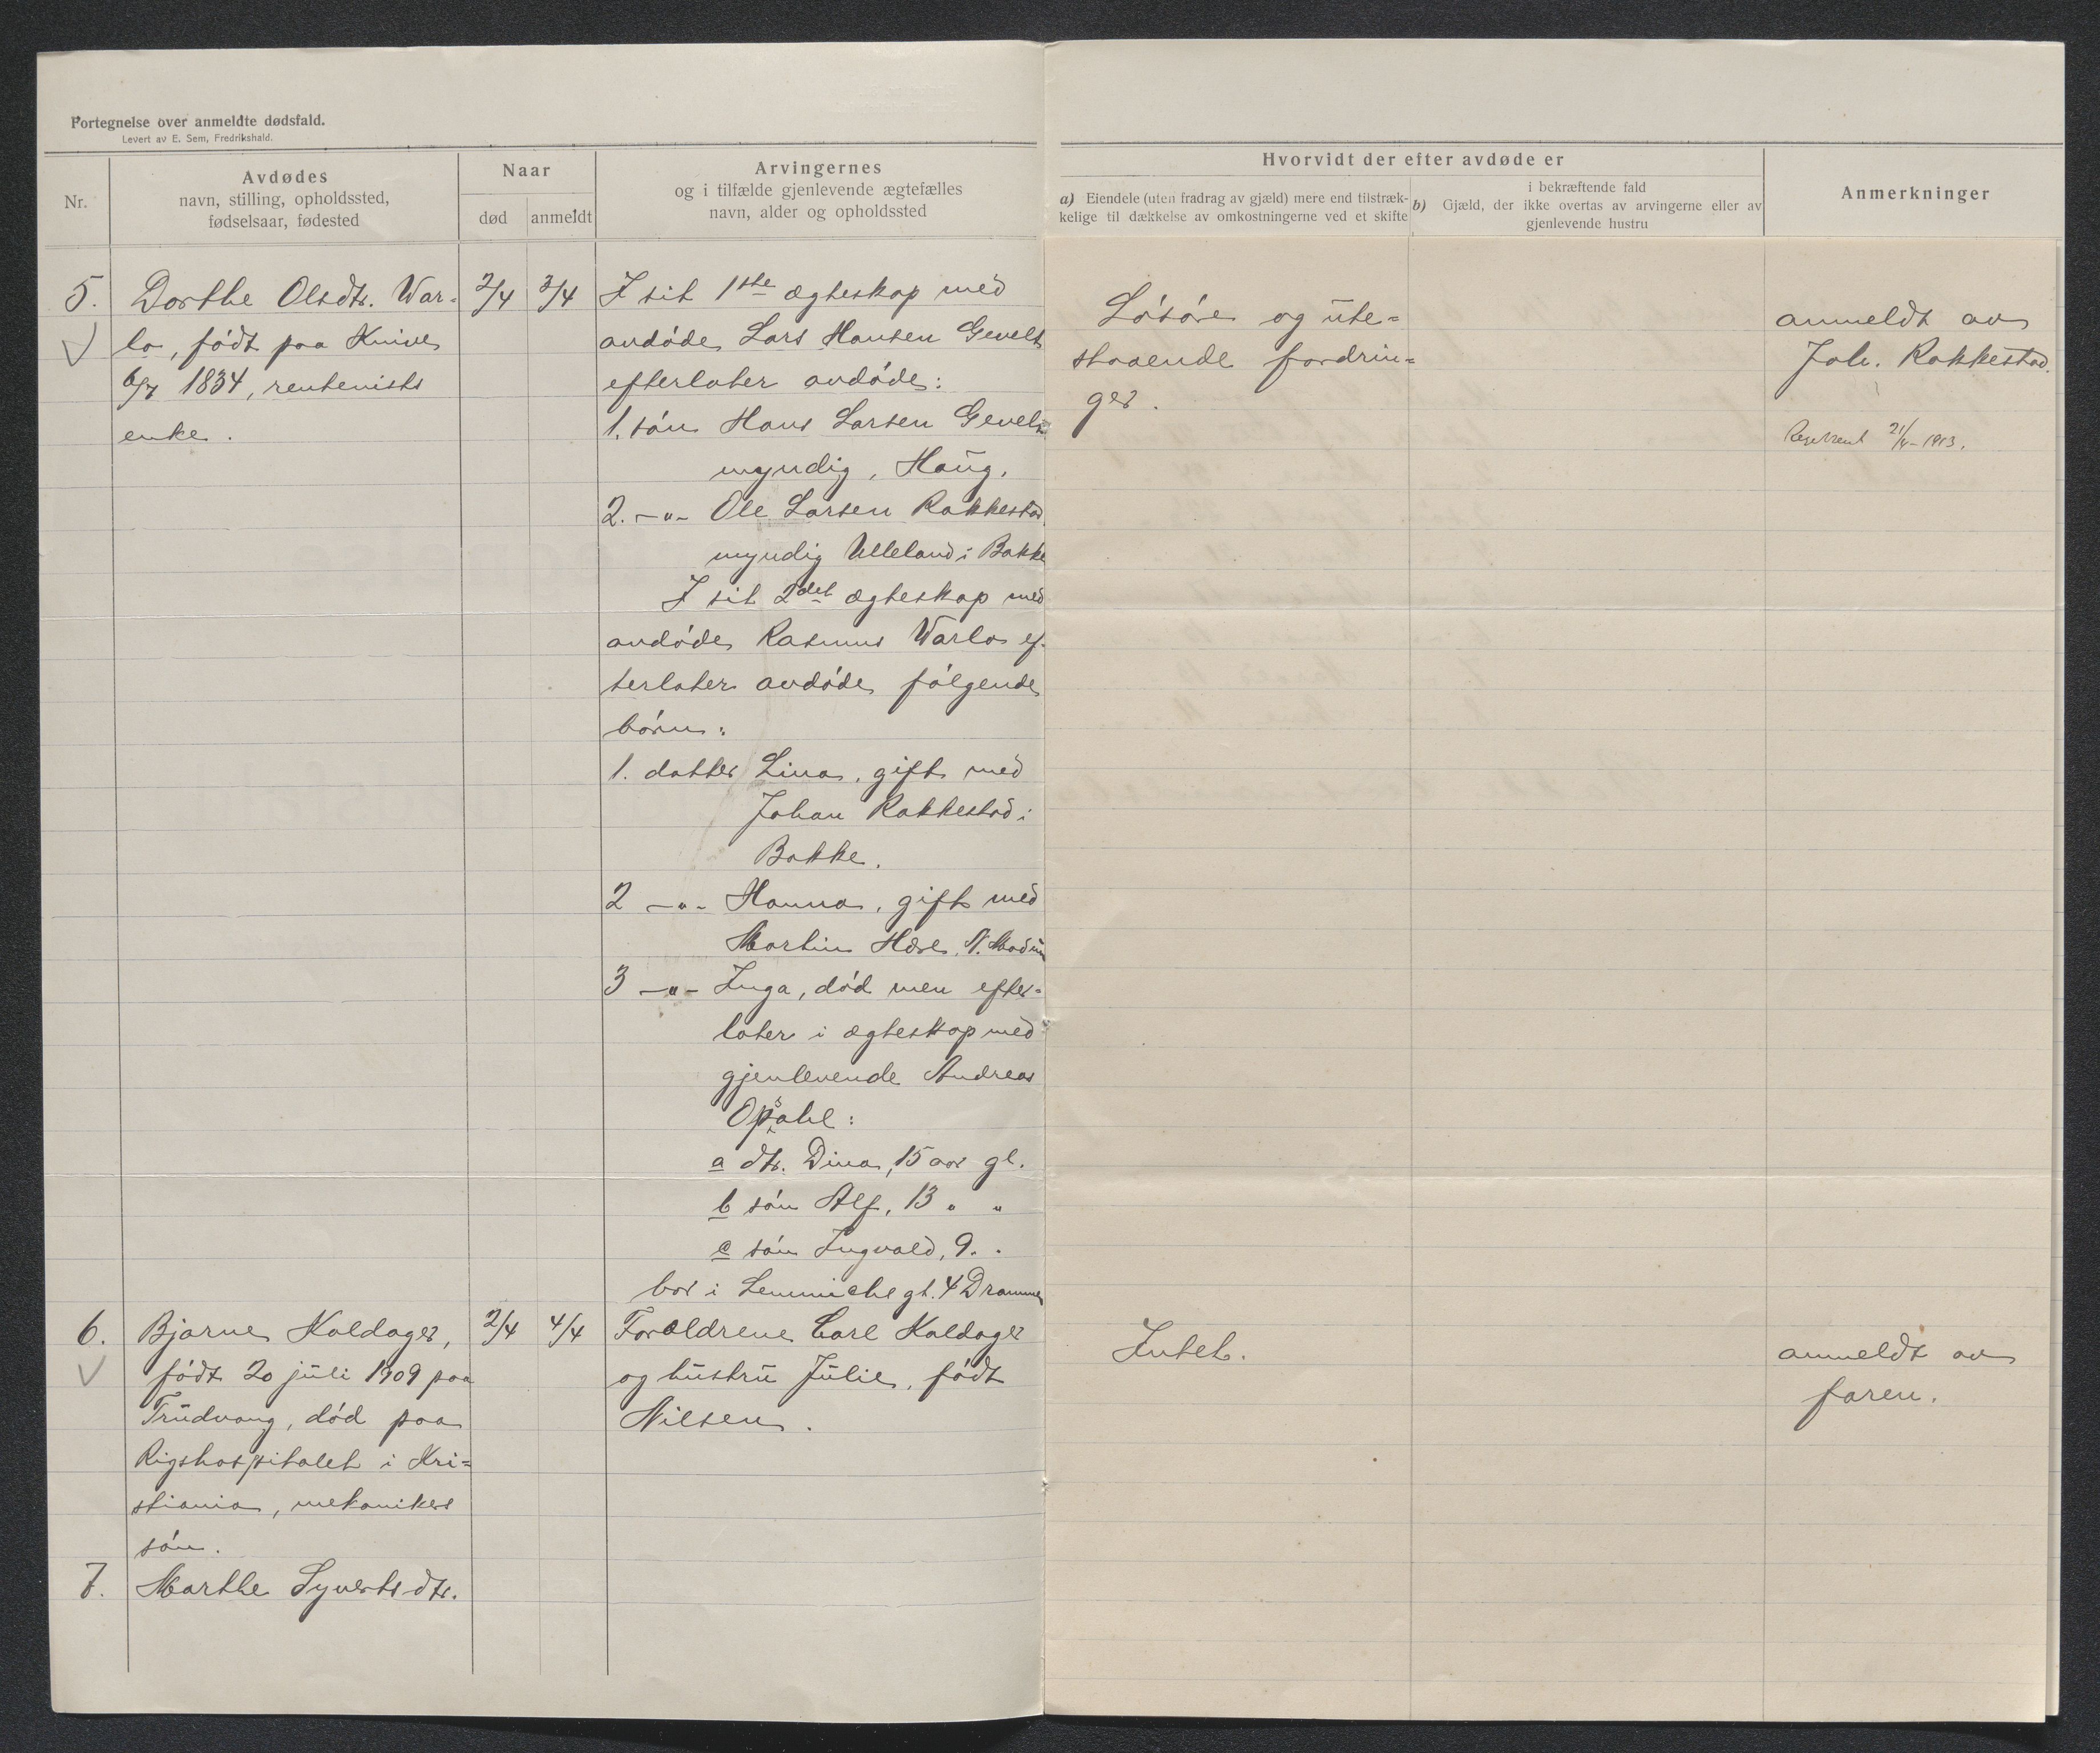 Fortegnelse over anmeldte dødsfald.
Levert av E. Sem, Fredrikshald.
Nr.
Avdødes
navn, stilling, opholdssted,
fødselsaar, fødested
Naar
død
anmeldt
Arvingernes
og i tilfælde gjenlevende ægtefælles
navn, alder og opholdssted
Hvorvidt der efter avdøde er
a) Eiendele (uten fradrag av gjæld) mere end tilstræk-
kelige til dækkelse av omkostningerne ved et skifte
i bekræftende fald
b) Gjæld, der ikke overtas av arvingerne eller av
gjenlevende hustru
Anmerkninger
5.
Dorthe Olsdtr. War-
lo, født paa Knive
6/7 1834, rentenists
enke.
2/4
3/4
I sit 1ste ægteskap med
avdøde Lars Hansen Gevelt
efterlater avdøde:
1. søn Hans Larsen Gevelt
myndig, Haug.
2. -"- Ole Larsen Rakkestad
myndig Ulleland i Bakke
I sit 2det ægteskap med
avdøde Rasmus Warlo ef-
terlater avdøde følgende
børn:
1. datter Lina, gift med
Johan Rakkestad i
Bakke.
2 -"- Hanna, gift med
Martin Høre, N. Modum
3 -"- Inga, død men efter-
later i ægteskap med
gjenlevende Andreas
Opsahl:
a dtr. Dina, 15 aar gl.
b søn Alf, 13 " "
c søn Ingvald, 9. .
bor i gt. 4 Drammen
Løsøre og ute-
staaende fordrin-
ger.
anmeldt av
Joh. Rakkestad.
21/4-1913.
6.
Bjarne Kaldager,
født 20 juli 1909 paa
Trudvang, død paa
Rigshospitalet i Kri-
stiania, mekanikers
søn.
2/4
4/4
Forældrene Carl Kaldager
og hustru Julie, født
Nilsen.
Intet.
anmeldt av
faren.
7.
Marthe Syvertsdtr.